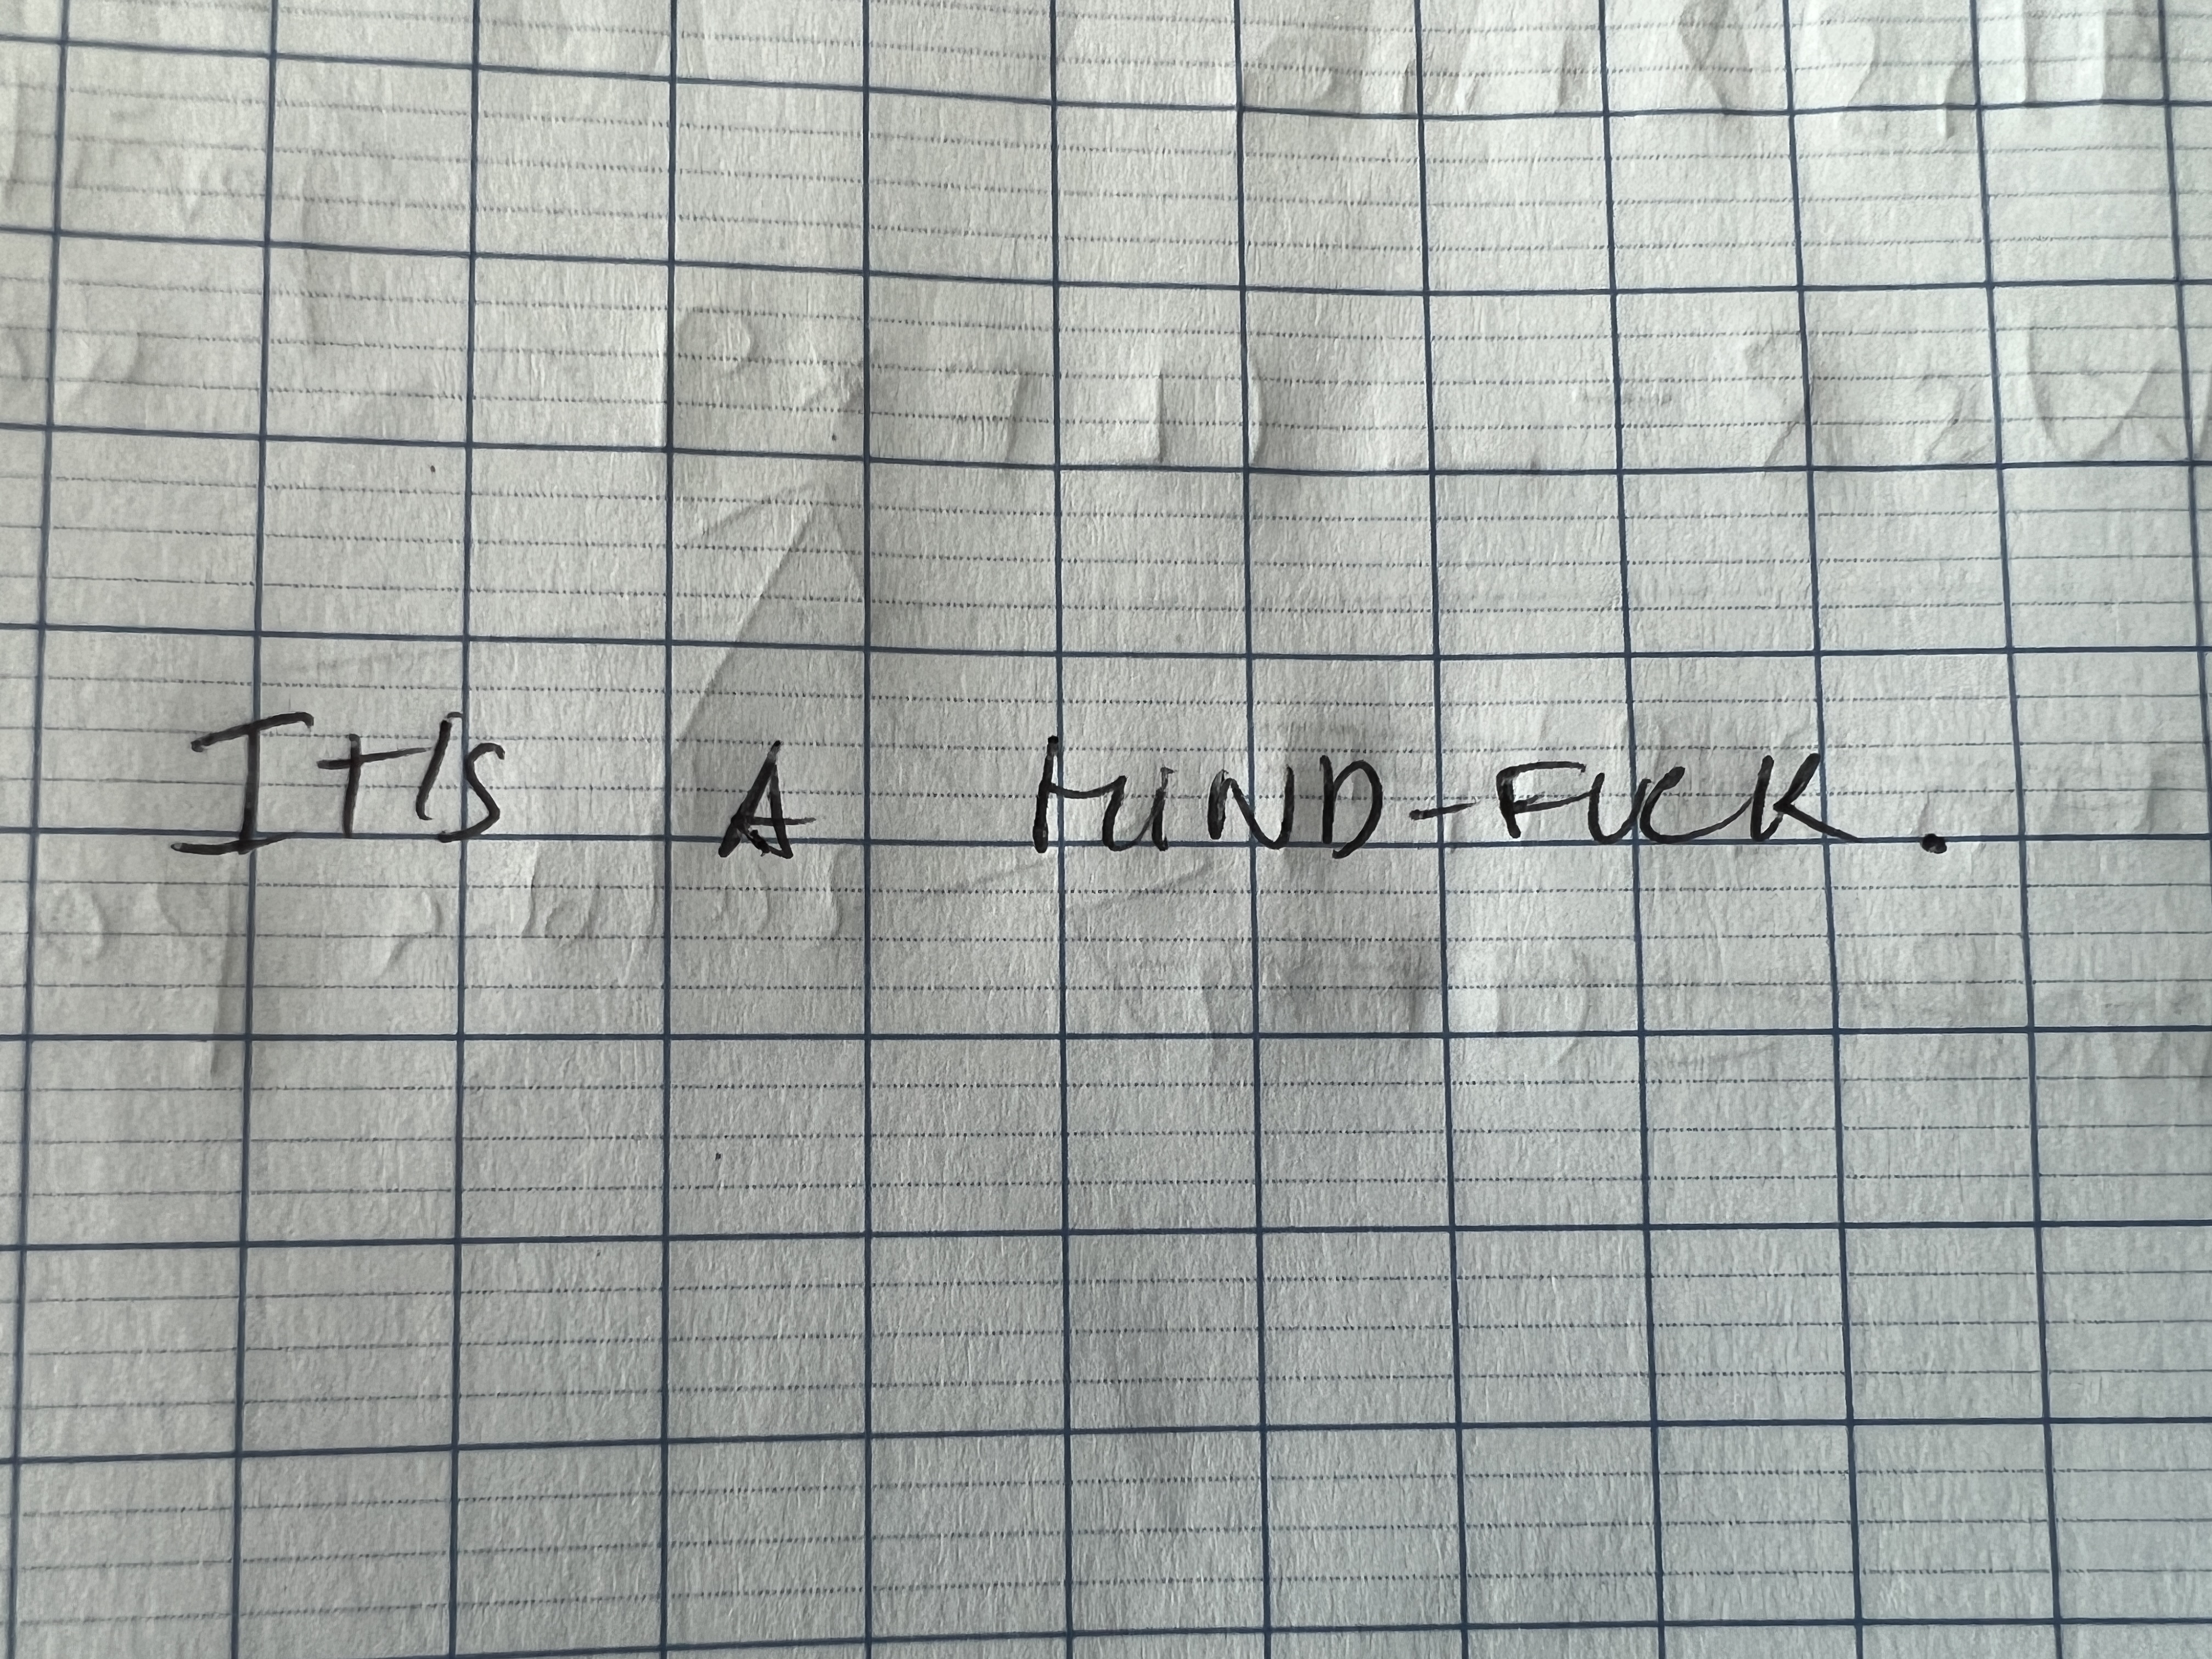 It's A MIND-FUCK.